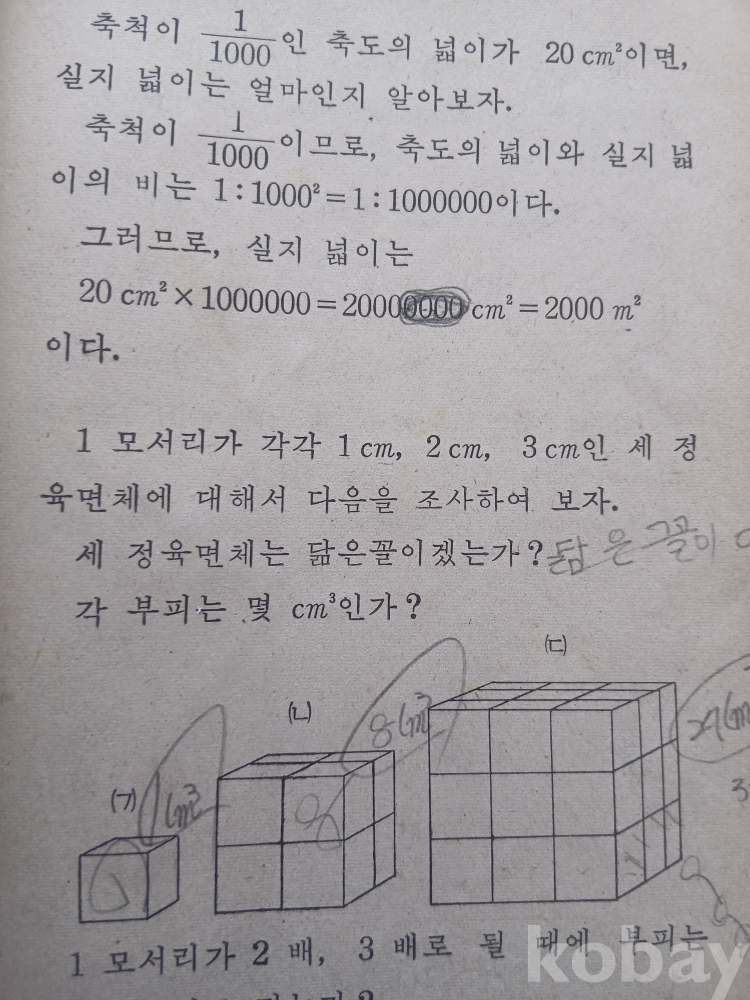 축척이 1/1000인 축도의 넓이가 20 cm²이면,
실지 넓이는 얼마인지 알아보자.
축척이 1/1000이므로, 축도의 넓이와 실지 넓
이의 비는 1:1000²=1:1000000이다.
그러므로, 실지 넓이는
20 cm²×1000000=20000000 cm²=2000 m²
이다.
1 모서리가 각각 1 cm, 2 cm, 3 cm인 세 정
육면체에 대해서 다음을 조사하여 보자.
세 정육면체는 닮은꼴이겠는가? 닮은꼴이
각 부피는 몇 cm³인가?
㈀ 1cm³
㈁ 8cm³
㈂
1 모서리가 2 배, 3 배로 될 때에 부피는
kobay